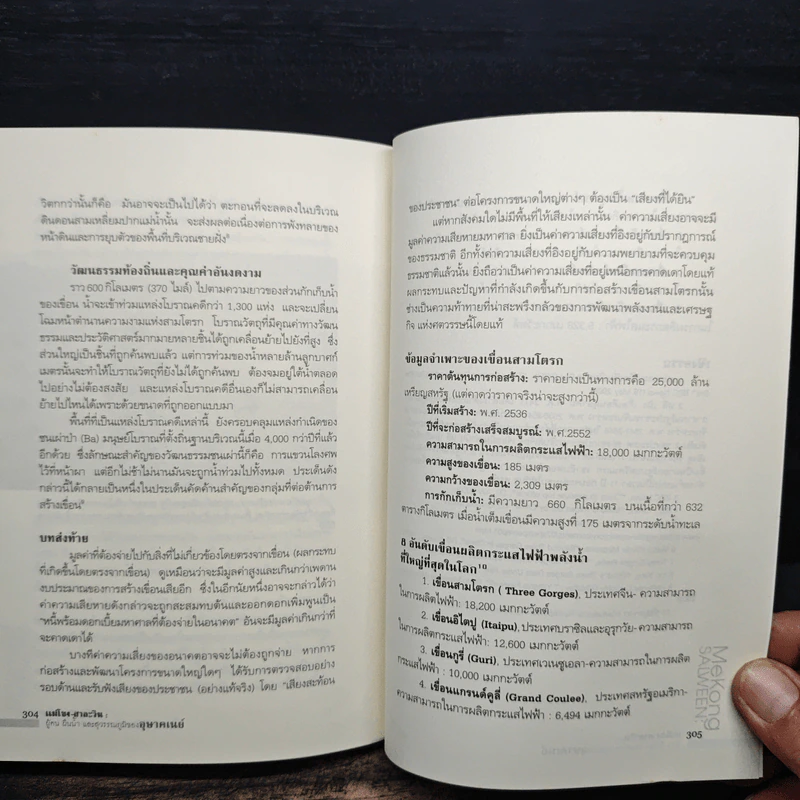 วิตกกว่านั้นก็คือ มันอาจจะเป็นไปได้ว่า ตะกอนที่จะลดลงในบริเวณ
ดินดอนสามเหลี่ยมปากแม่น้ำนั้น จะส่งผลต่อเนื่องต่อการพังทลายของ
หน้าดินและการยุบตัวของพื้นที่บริเวณชายฝั่ง
วัฒนธรรมท้องถิ่นและคุณค่าอันงดงาม
ราว 600 กิโลเมตร (370 ไมล์) ไปตามความยาวของส่วนกักเก็บน้ำ
ของเขื่อน น้ำจะเข้าท่วมแหล่งโบราณคดีกว่า 1,300 แห่ง และจะเปลี่ยน
โฉมหน้าตำนานความงามแห่งสามโตรก โบราณวัตถุที่มีคุณค่าทางวัฒน
ธรรมและประวัติศาสตร์มากมายหลายชิ้นได้ถูกเคลื่อนย้ายไปยังที่สูง ซึ่ง
ส่วนใหญ่เป็นชิ้นที่ถูกค้นพบแล้ว แต่การท่วมของน้ำหลายล้านลูกบาศก์
เมตรนั้นจะทำให้โบราณวัตถุที่ยังไม่ได้ถูกค้นพบ ต้องจมอยู่ใต้น้ำตลอด
ไปอย่างไม่ต้องสงสัย และแหล่งโบราณคดีอื่นเองก็ไม่สามารถเคลื่อน
ย้ายไปไหนได้เพราะด้วยขนาดที่ถูกออกแบบมา
พื้นที่ที่เป็นแหล่งโบราณคดีเหล่านี้ ยังครอบคลุมแหล่งกำเนิดของ
ชนเผ่าป่า (Ba) มนุษย์โบราณที่ตั้งถิ่นฐานบริเวณนี้เมื่อ 4,000 กว่าปีที่แล้ว
อีกด้วย ซึ่งลักษณะสำคัญของวัฒนธรรมชนเผ่านี้ก็คือ การแขวนโลงศพ
ไว้ที่หน้าผา แต่อีกไม่ช้าไม่นานมันจะถูกน้ำท่วมไปทั้งหมด ประเด็นดัง
กล่าวนี้ได้กลายเป็นหนึ่งในประเด็นคัดค้านสำคัญของกลุ่มที่ต่อต้านการ
สร้างเขื่อน
บทส่งท้าย
มูลค่าที่ต้องจ่ายไปกับสิ่งที่ไม่เกี่ยวข้องโดยตรงจากเขื่อน (ผลกระทบ
ที่เกิดขึ้นโดยตรงจากเขื่อน) ดูเหมือนว่าจะมีมูลค่าสูงและเกินกว่าเพดาน
งบประมาณของการสร้างเขื่อนเสียอีก ซึ่งในอีกนัยหนึ่งอาจจะกล่าวได้ว่า
ค่าความเสียหายดังกล่าวจะถูกสะสมทบต้นและออกดอกเพิ่มพูนเป็น
“หนี้พร้อมดอกเบี้ยมหาศาลที่ต้องจ่ายในอนาคต” อันจะมีมูลค่าเกินกว่าที่
จะคาดเดาได้
บางทีค่าความเสี่ยงของอนาคตอาจจะไม่ต้องถูกจ่าย หากการ
ก่อสร้างและพัฒนาโครงการขนาดใหญ่ใดๆ ได้รับการตรวจสอบอย่าง
รอบด้านและรับฟังเสียงของประชาชน (อย่างแท้จริง) โดย “เสียงสะท้อน
304 แม่โขง-สาละวิน :
ผู้คน ผืนน้ำ และสุวรรณภูมิของอุษาคเนย์
ของประชาชน” ต่อโครงการขนาดใหญ่ต่างๆ ต้องเป็น “เสียงที่ได้ยิน”
แต่หากสังคมใดไม่มีพื้นที่ให้เสียงเหล่านั้น ค่าความเสี่ยงอาจจะมี
มูลค่าความเสียหายมหาศาล ยิ่งเป็นค่าความเสี่ยงที่อิงอยู่กับปรากฏการณ์
ของธรรมชาติ อีกทั้งค่าความเสี่ยงที่อิงอยู่กับความพยายามที่จะควบคุม
ธรรมชาติแล้วนั้น ยิ่งถือว่าเป็นค่าความเสี่ยงที่อยู่เหนือการคาดเดาโดยแท้
ผลกระทบและปัญหาที่กำลังเกิดขึ้นกับการก่อสร้างเขื่อนสามโตรกนั้น
ช่างเป็นความท้าทายที่น่าสะพรึงกลัวของการพัฒนาพลังงานและเศรษฐ
กิจ แห่งศตวรรษนี้โดยแท้
ข้อมูลจำเพาะของเขื่อนสามโตรก
ราคาต้นทุนการก่อสร้าง: ราคาอย่างเป็นทางการคือ 25,000 ล้าน
เหรียญสหรัฐ (แต่คาดว่าราคาจริงน่าจะสูงกว่านี้)
ปีที่เริ่มสร้าง: พ.ศ. 2536
ปีที่จะก่อสร้างเสร็จสมบูรณ์: พ.ศ.2552
ความสามารถในการผลิตกระแสไฟฟ้า: 18,000 เมกกะวัตต์
ความสูงของเขื่อน: 185 เมตร
ความกว้างของเขื่อน: 2,309 เมตร
การกักเก็บน้ำ: มีความยาว 660 กิโลเมตร บนเนื้อที่กว่า 632
ตารางกิโลเมตร เมื่อน้ำเต็มเขื่อนมีความสูงที่ 175 เมตรจากระดับน้ำทะเล
8 อันดับเขื่อนผลิตกระแสไฟฟ้าพลังน้ำ
ที่ใหญ่ที่สุดในโลก¹⁰
1. เขื่อนสามโตรก ( Three Gorges), ประเทศจีน- ความสามารถ
ในการผลิตไฟฟ้า: 18,200 เมกกะวัตต์
2. เขื่อนอิไตปู (Itaipu),ประเทศบราซิลและอุรุกวัย- ความสามารถ
ในการผลิตไฟฟ้า: 12,600 เมกกะวัตต์
3. เขื่อนกูรี่ (Guri), ประเทศเวเนซูเอลา-ความสามารถในการผลิต
กระแสไฟฟ้า : 10,000 เมกกะวัตต์
4. เขื่อนแกรนด์คูลี่ (Grand Coulee), ประเทศสหรัฐอเมริกา-
ความสามารถในการผลิตกระแสไฟฟ้า : 6,494 เมกกะวัตต์
Mekong
SALWEEN
305